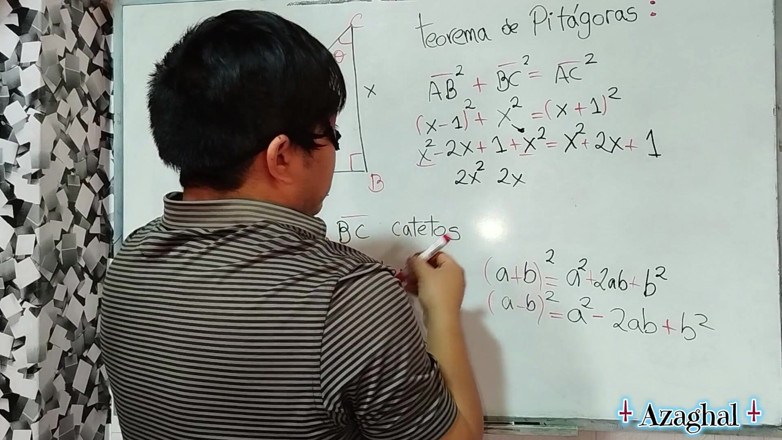 Teorema de Pitágoras:
C
θ
x
B
AB² + BC² = AC²
(x-1)² + x² = (x+1)²
x²-2x+1+x² = x²+2x+1
2x² 2x
BC catetos
(a+b)² = a²+2ab+b²
(a-b)² = a²-2ab+b²
Azaghal